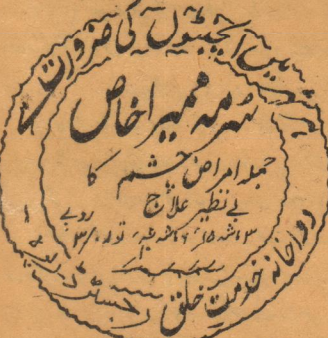 ہمیں ایجنٹوں کی ضرورت ہے
سرمہ ممیرا خاص
جملہ امراض چشم کا
بے نظیر علاج
۳ ماشہ ۱۵؍ ۶ ماشہ تولہ ۳/۰ روپے
دواخانہ خدمت خلق رجسٹرڈ ربوہ